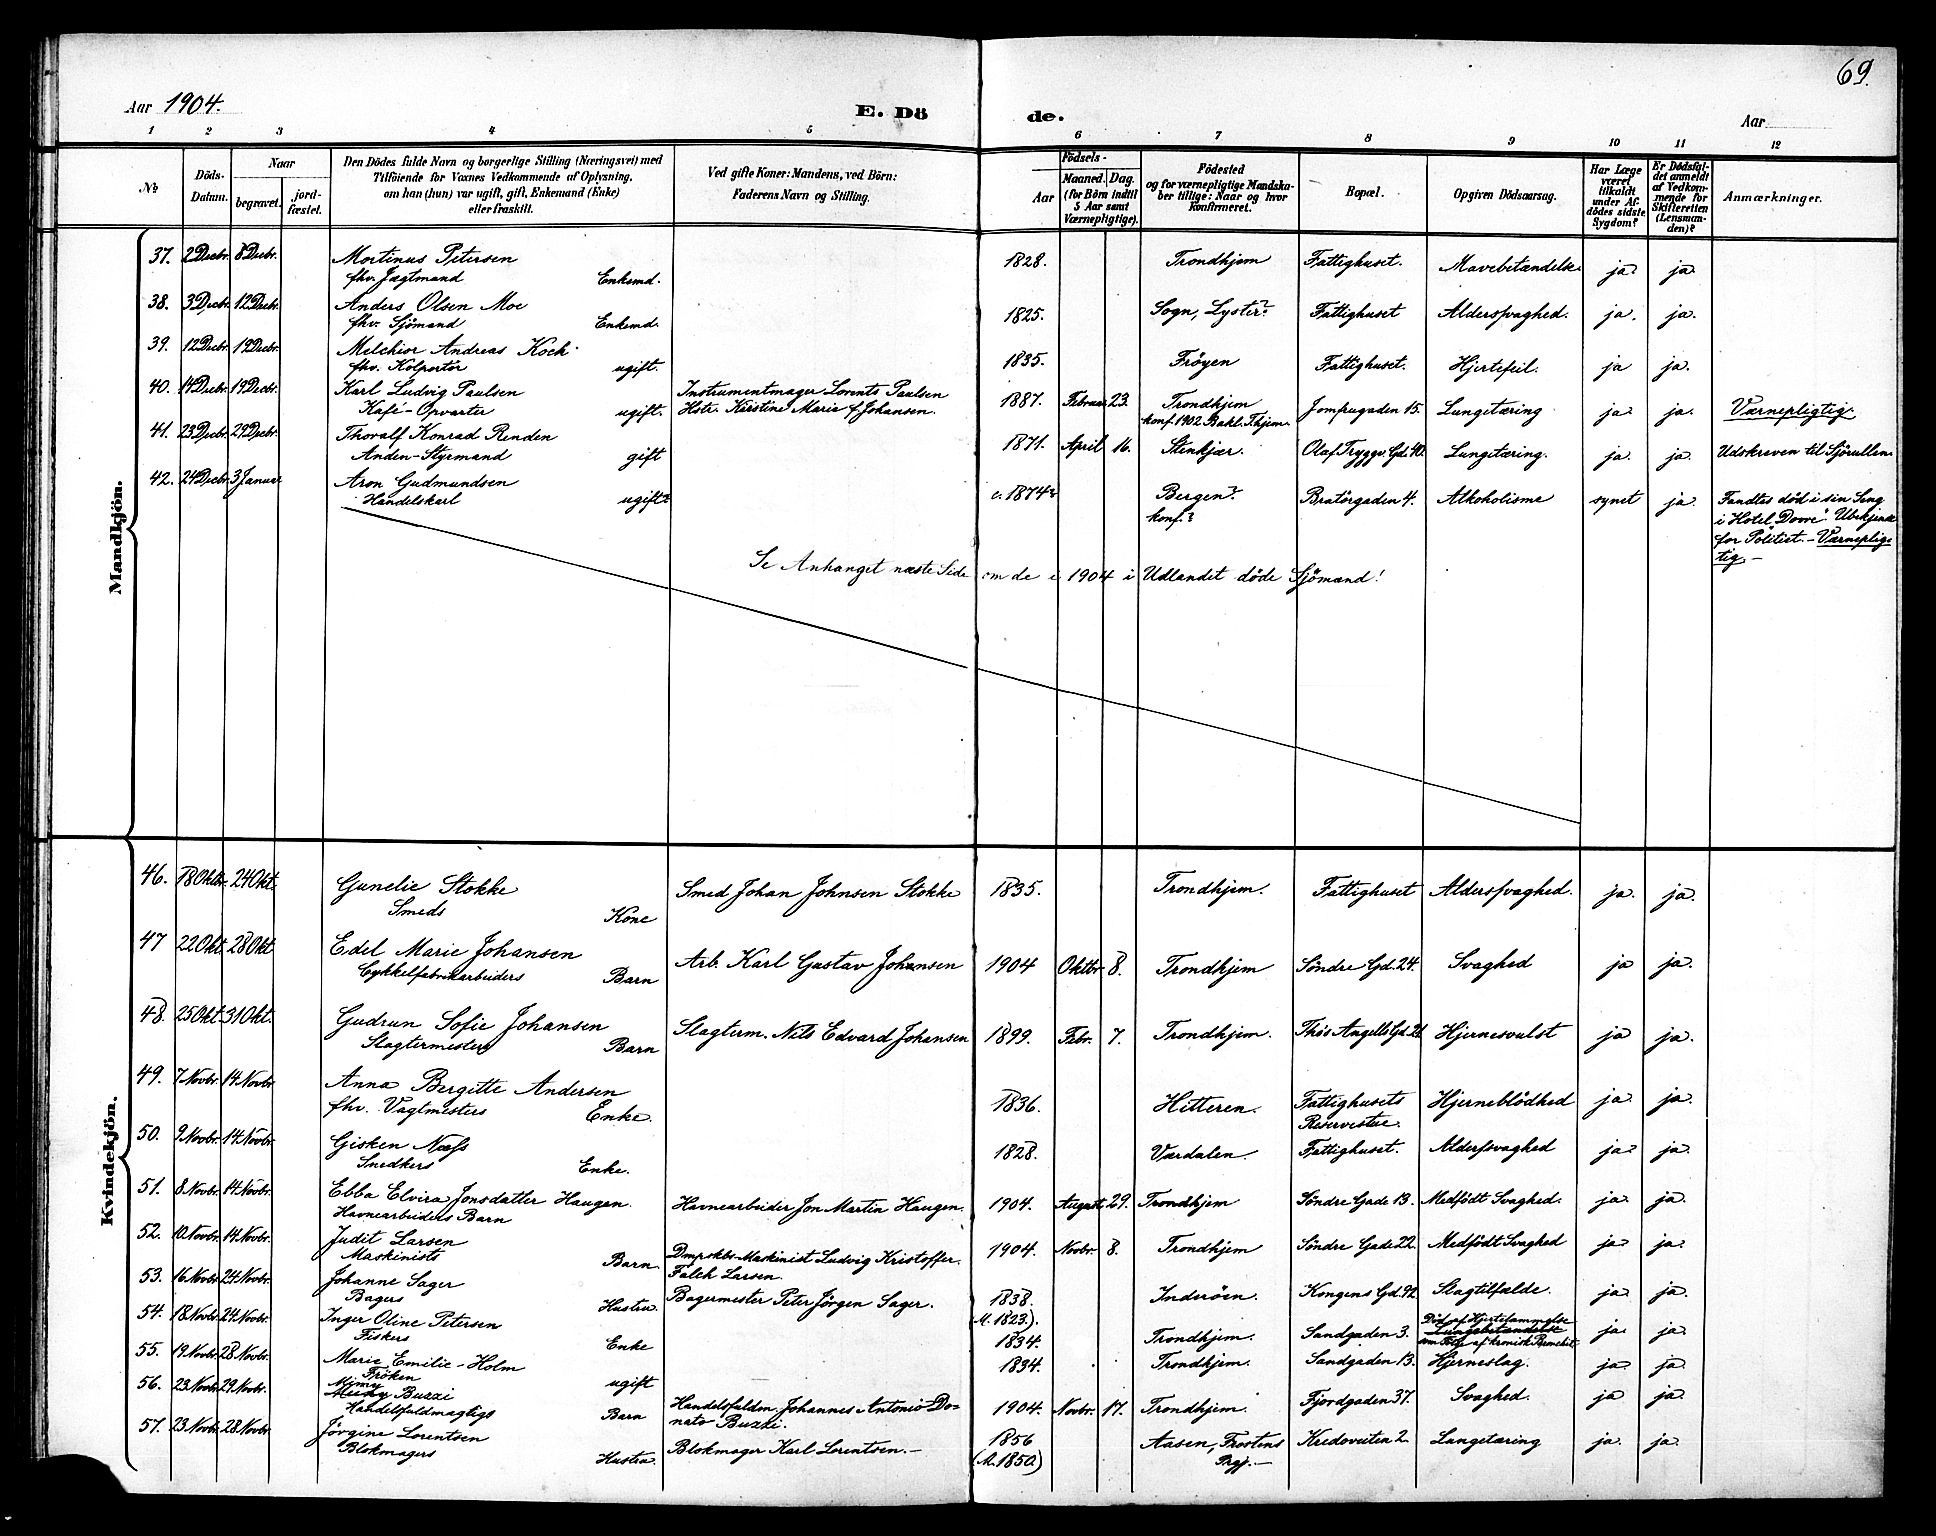 69.
Aar 1904.
E. Dö
de.
Aar
1 2 3 4 5 6 7 8 9 10 11 12
No
Döds-
Datum.
Naar
begravet.
jord-
fæstet.
Den Dödes fulde Navn og borgerlige Stilling (Næringsvei) med
Tilföiende for Voxnes Vedkommende af Oplysning,
om han (hun) var ugift, gift, Enkemand (Enke)
eller fraskilt.
Ved gifte Koner: Mandens, ved Börn:
Faderens Navn og Stilling.
Födsels-
Aar
Maaned. Dag.
(for Börn indtil
5 Aar samt
Værnepligtige).
Födested
og for værnepligtige Mandska-
ber tillige: Naar og hvor
konfirmeret.
Bopæl.
Opgiven Dödsaarsag.
Har Læge
været
tilkaldt
under Af-
dödes sidste
Sygdom?
Er Dödsfal-
det anmeldt
af Vedkom-
mende for
Skifteretten
(Lensman-
den)?
Anmærkninger.
Mandkjön.
37. 2 Decbr. 8 Decbr. Martinus Petersen 1828. Trondhjem Fattighuset. Mavebetændelse ja ja
fhv. Jægtmand Enkemd.
38. 3 Decbr. 12 Decbr. Anders Olsen Moe 1825. Sogn, Lyster? Fattighuset Alderssvaghed. ja. ja.
fhv. Sjömand Enkemd.
39. 12 Decbr. 19 Decbr. Melchior Andreas Koch 1835. Fröyen Fattighuset. Hjertefeil. ja ja.
fhv. Kolportör ugift.
40. 14 Decbr. 19 Decbr. Karl Ludvig Paulsen Instrumentmager Lorents Paulsen 1887. Februar 23. Trondhjem Jomfrugaden 15. Lungetæring ja ja. Værnepligtig.
Kafé-Opvarter ugift. Hstr. Kirstine Marie f. Johansen. konf. 1902 Bakl. Thjem.
41. 23 Decbr. 29 Decbr. Thoralf Konrad Renden 1871. April 16. Stenkjær. Olaf Tryggv. Gd. 40. Lungetæring. ja. ja. Udskreven til Sjörullen.
Anden-Styrmand gift
42. 24 Decbr. 3 Januar Aron Gudmundsen c. 1874? Bergen? Bratörgaden 4. Alkoholisme synet ja. Fandtes död i sin Seng
Handelskarl ugift? konf.? i Hotel "Dovre". Ubekjendt
for Politiet. - Værneplig-
tig -
Se Anhanget næste Side om de i 1904 i Udlandet döde Sjömænd!
Kvindekjön.
46. 18 Oktbr. 24 Okt. Gunelie Stokke Smed Johan Johnsen Stokke 1835. Trondhjem. Fattighuset Alderssvaghed. ja. ja.
Smeds Kone
47 22 Okt. 28 Okt Edel Marie Johansen Arb. Karl Gustav Johansen 1904 Oktbr. 8. Trondhjem Söndre Gd. 24. Svaghed ja ja.
Cykkelfabrikarbeiders Barn
48. 25 Okt. 31 Okt. Gudrun Sofie Johansen Slagterm. Nils Edvard Johansen 1899. Febr. 7. Trondhjem. Ths Angells Gd. 21 Hjernesvulst ja ja.
Slagtermesters Barn
49. 7 Novbr. 14 Novbr. Anna Bergitte Andersen 1836. Hitteren. Fattighusets Hjerneblödhed ja. ja.
fhv. Vagtmesters Enke. Reservestue.
50. 9 Novbr. 14 Novbr. Gisken Næss 1828. Værdalen. Fattighuset. Alderssvaghed ja. ja.
Snedkers Enke.
51. 8 Novbr. 14 Novbr. Ebba Elvira Jonsdatter Haugan. Havnearbeider Jon Martin Haugen. 1904. August 29. Trondhjem Söndre Gade 13. Medfödt Svaghed. ja. ja.
Havnearbeiders Barn
52. 10 Novbr. 14 Novbr. Judit Larsen Dmpskbs-Maskinist Ludvig Kristoffer 1904. Novbr. 8. Trondhjem Söndre Gade 22. Medfödt Svaghed ja. ja.
Maskinists Barn. Falch Larsen.
53. 16 Novbr. 24 Novbr. Johanne Sager Bagermester Peter Jörgen Sager. 1838. Inderöen. Kongens Gd. 92. Slagtilfælde. ja. ja.
Bagers Hustru. (M. 1823).
54. 18 Novbr. 24 Novbr. Inger Oline Petersen 1834. Trondhjem. Sandgaden 3. Död af Hjertelammelse ja ja.
Fiskers Enke Lungebetændelse
som Fölge af kronisk
55. 19 Novbr. 28 Novbr. Marie Emilie Holm 1834. Trondhjem. Sandgaden 13. Hjerneslag. ja ja.
Fröken ugift
56. 23 Novbr. 29 Novbr. Mimy Buzzi Handelsfuldm. Johannes Antonio Do- 1904. Novbr. 17. Trondhjem. Fjordgaden 37. Svaghed. ja ja.
Handelsfuldmægtigs Barn nato Buzzi.
57. 23 Novbr. 28 Novbr. Jörgine Lorentsen Blokmager Karl Lorentsen. - 1856 Aasen, Frostens Kredoveiten 2. Lungetæring ja. ja.
Blokmagers Hustru. (M. 1850) Prgj. -